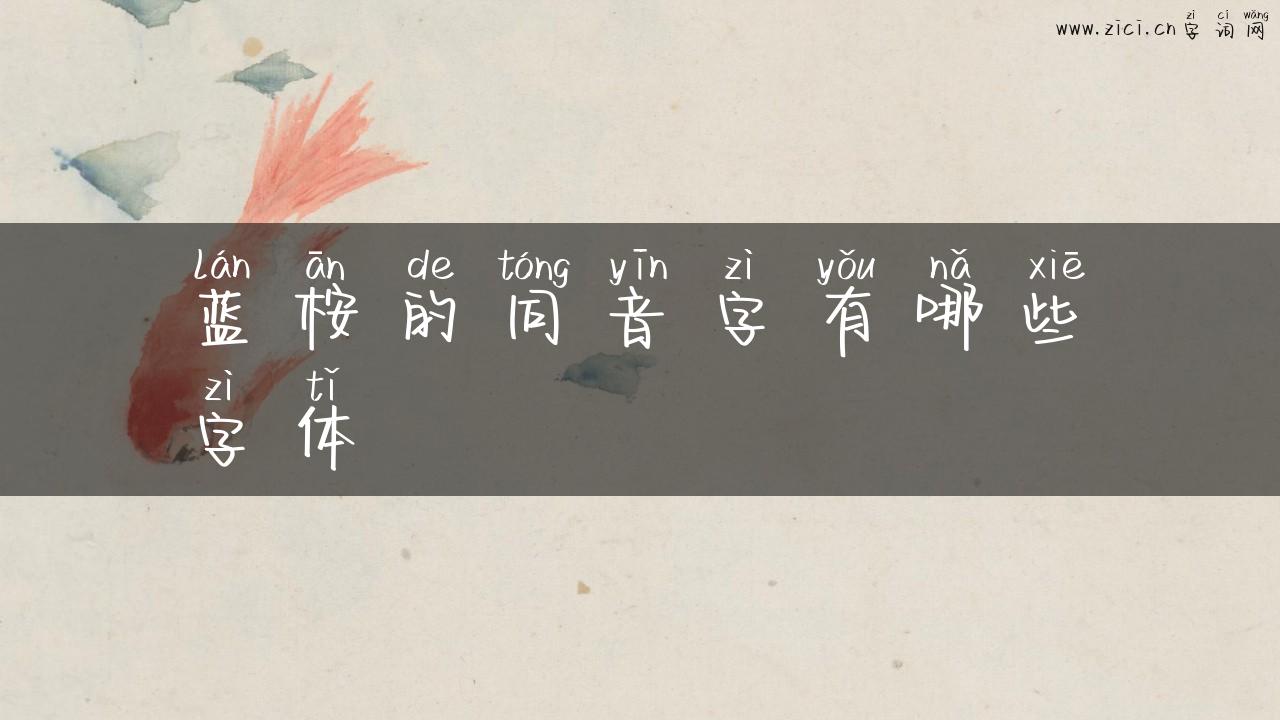 zì cí wǎng
www.zici.cn字词网
lán ān de tóng yīn zì yǒu nǎ xiē
蓝桉的同音字有哪些
zì tǐ
字体